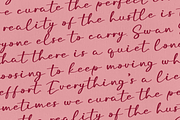 we curate the perfect
reality of the hustle is
yone else to carry. Swan S
hat there is a quiet lone
oosing to keep moving wh
effort. Everything's a lie
metimes we curate the pe
the reality of the hust